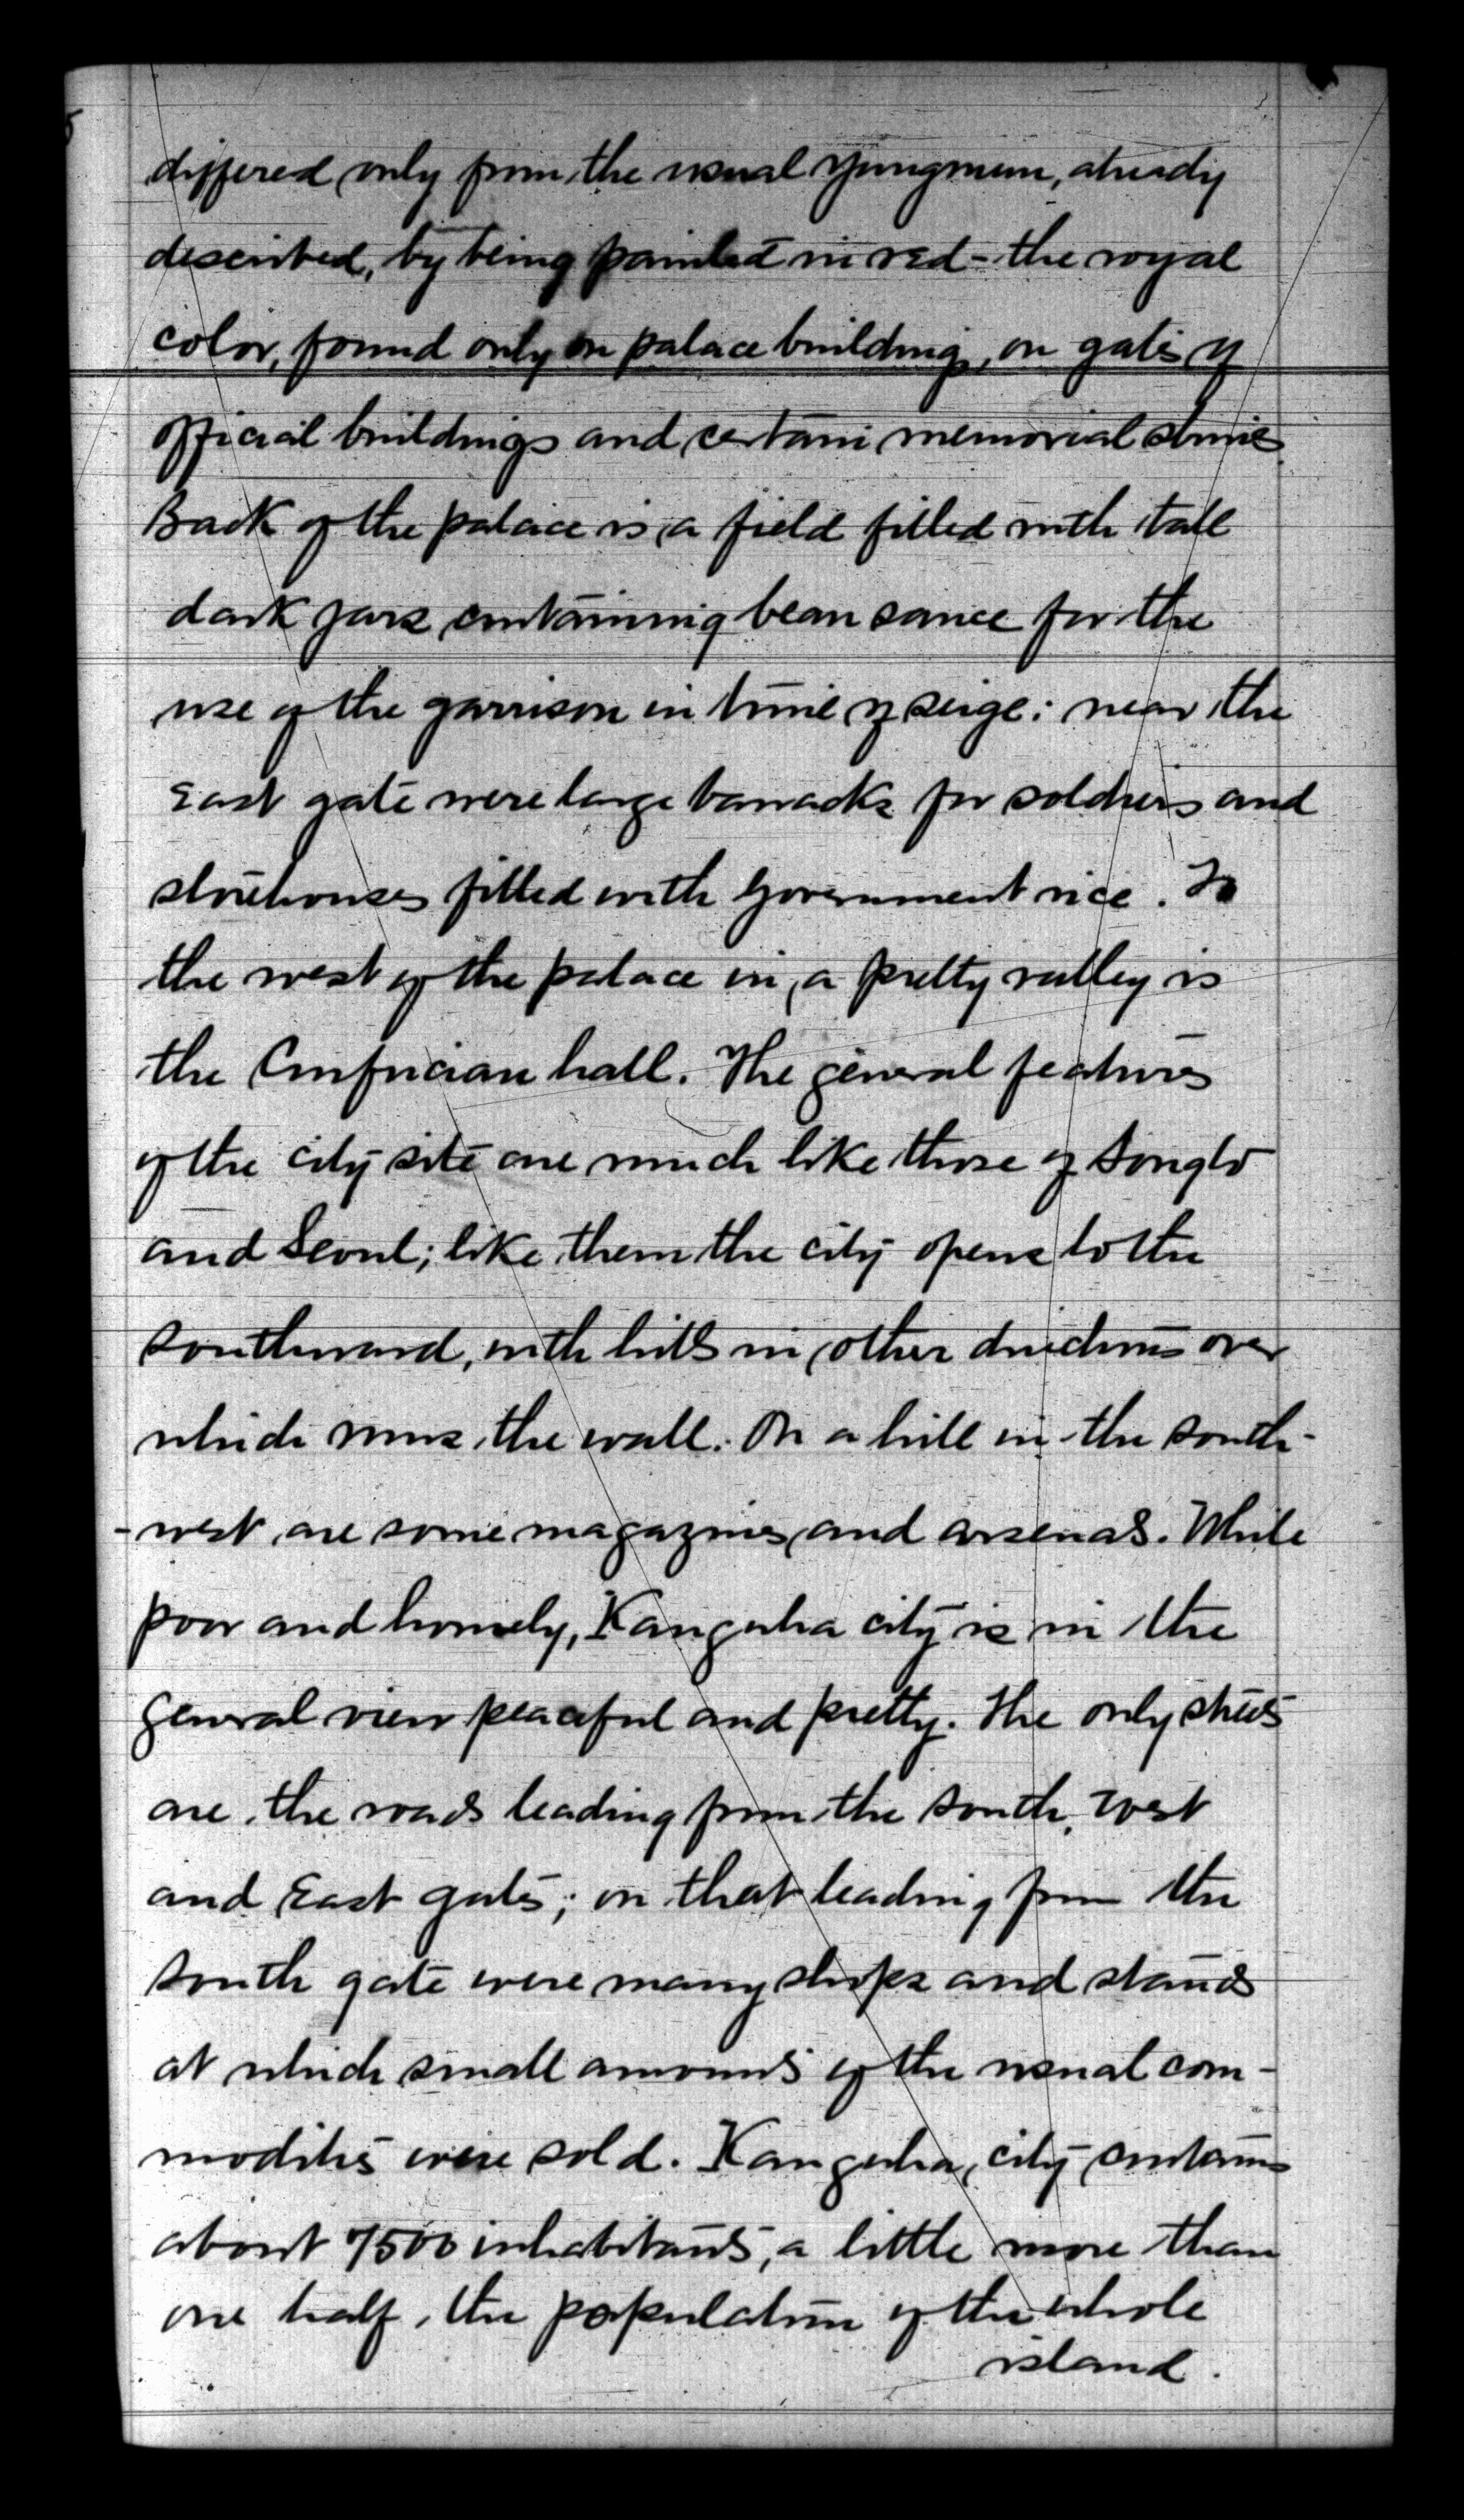 differed only from the usual Yungmun, already
described, by being painted in red - the royal
color, found only on palace buildings, on gates of
official buildings and certain memorial stones.
Back of the palace is a field filled with tall
dark jars containing bean sauce for the
use of the garrison in time of seige: near the
East gate were large barracks for soldiers and
storehouses filled with Government rice. To
the west of the palace in a pretty valley is
the Confucian hall. The general features
of the city site are much like those of Songto
and Seoul; like them the city opens to the
southward, with hills in other directions over
which runs the wall. On a hill in the south-
-west are some magazines and arsenals. While
poor and homely, Kangwha city is in the
general view peaceful and pretty. The only streets
are the roads leading from the South, West
and East gates; on that leading from the
South gate were many shops and stands
at which small amounts of the usual com-
modities were sold. Kangwha city contains
about 7500 inhabitants, a little more than
one half the population of the whole
island.